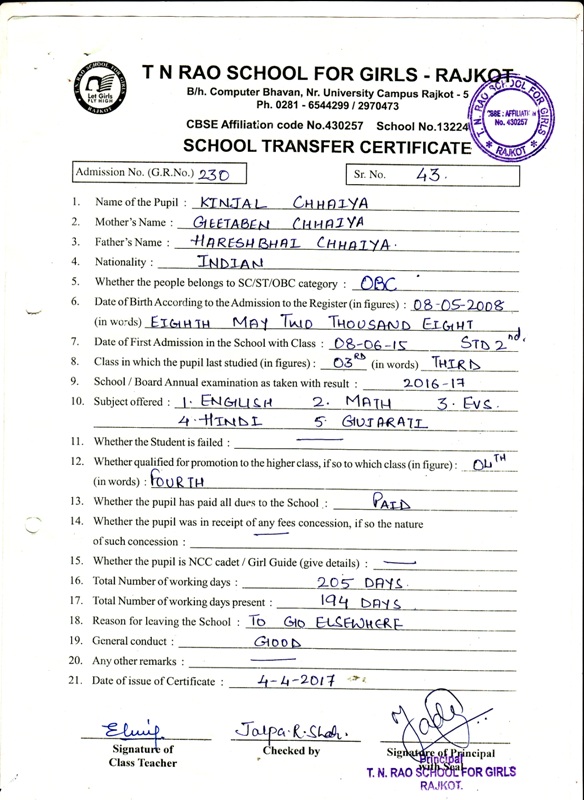 T. N. RAO SCHOOL FOR GIRLS
Let Girls
FLY HIGH
RAJKOT
T N RAO SCHOOL FOR GIRLS - RAJKOT
B/h. Computer Bhavan, Nr. University Campus Rajkot - 5
Ph. 0281 - 6544299 / 2970473
CBSE Affiliation code No.430257 School No.13224
T. N. RAO SCHOOL FOR GIRLS
CBSE: AFFILIATION
No. 430257
* RAJKOT *
SCHOOL TRANSFER CERTIFICATE
Admission No. (G.R.No.) 230 Sr. No. 43.
1. Name of the Pupil : KINJAL CHHAIYA
2. Mother's Name : GEETABEN CHHAIYA
3. Father's Name : HARESHBHAI CHHAIYA.
4. Nationality : INDIAN
5. Whether the people belongs to SC/ST/OBC category : OBC
6. Date of Birth According to the Admission to the Register (in figures) : 08-05-2008
(in words) EIGHTH MAY TWO THOUSAND EIGHT
7. Date of First Admission in the School with Class : 08-06-15 STD 2nd.
8. Class in which the pupil last studied (in figures) : 03RD (in words) THIRD
9. School / Board Annual examination as taken with result : 2016-17
10. Subject offered : 1. ENGLISH 2. MATH 3. EVS.
4. HINDI 5. GUJARATI
11. Whether the Student is failed :
12. Whether qualified for promotion to the higher class, if so to which class (in figure) : 04TH
(in words) : FOURTH
13. Whether the pupil has paid all dues to the School : PAID
14. Whether the pupil was in receipt of any fees concession, if so the nature
of such concession :
15. Whether the pupil is NCC cadet / Girl Guide (give details) :
16. Total Number of working days : 205 DAYS.
17. Total Number of working days present : 194 DAYS
18. Reason for leaving the School : TO GO ELSEWHERE
19. General conduct : GOOD
20. Any other remarks :
21. Date of issue of Certificate : 4-4-2017
Jalpa.R.Shah.
Signature of Class Teacher
Checked by
Signature of Principal
with Seal
Principal
T. N. RAO SCHOOL FOR GIRLS
RAJKOT.